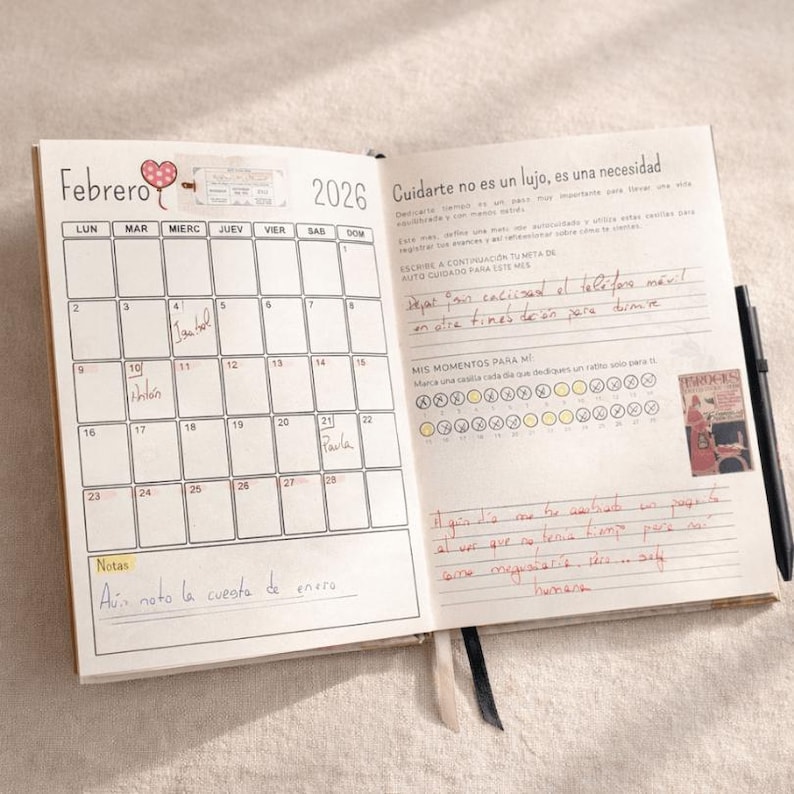 Febrero
2026
LUN MAR MIERC JUEV VIER SAB DOM
1
2 3 4 5 6 7 8
Isabel
9 10 11 12 13 14 15
Antón
16 17 18 19 20 21 22
Paula
23 24 25 26 27 28
Notas
Aún noto la cuesta de enero
Cuidarte no es un lujo, es una necesidad
Dedicarte tiempo es un paso muy importante para llevar una vida
equilibrada y con menos estrés.
Este mes, define una meta de autocuidado y utiliza estas casillas para
registrar tus avances y así reflexionar sobre cómo te sientes.
ESCRIBE A CONTINUACIÓN TU META DE
AUTO CUIDADO PARA ESTE MES
Dejar el teléfono móvil
en otra para dormir
MIS MOMENTOS PARA MÍ:
Marca una casilla cada día que dediques un ratito solo para ti.
1 2 3 4 5 6 7 8 9 10 11 12 13 14
15 16 17 18 19 20 21 22 23 24 25 26 27 28
Algún día me he un poquito
al ver que no tenía tiempo para mí
como me gustaría. Pero.. soy
humana